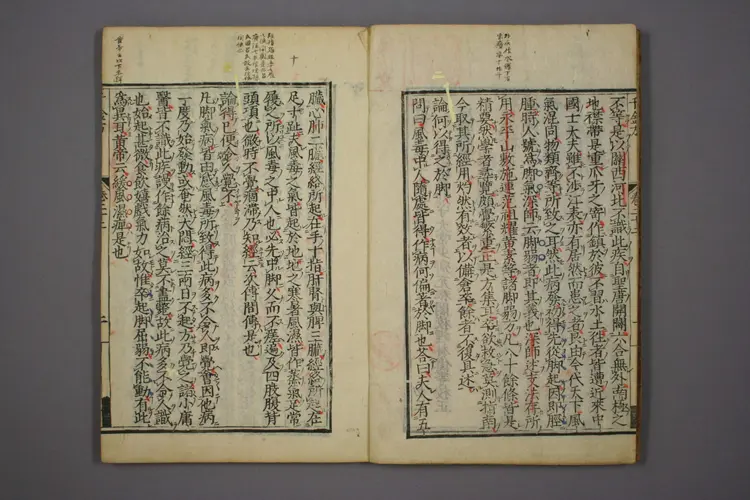 不等是以關西河北不識此疾自聖唐開闢六合無外南極之
地襟帶是重爪牙之寄作鎮於彼不習水土往者皆遭近來中
國士大夫雖不涉江表亦有居然而患之者良由今代天下風
氣混同物類齊等所致之耳然此病發初得先從脚起因即脛
腫時人號為脚氣深師云脚弱者即其義也深師述支法存所
用永平山敷施連范祖耀黃素等諸脚弱方凡八十餘條皆是
精要然學者尋覽頗覺繁重正是方集耳卒欲救急莫測指南
今取其所經用灼然有效者以備倉卒餘者不復具述
論何以得之於脚
問曰風毒中人隨處皆得作病何偏著於脚也荅曰夫人有五
臟心肺二臟經絡所起在手十指肝腎與脾三臟經絡所起在
足十趾夫風毒之氣皆起於地地之寒暑風濕皆作蒸氣足常
履之所以風毒之中人也必先中脚久而不瘥遍及四肢腹背
頭項也微時不覺痼滯乃知經云次傳間傳是也
論得已便令人覺不
凡脚氣病皆由感風毒所致得此病多不令人即覺會因他病
一度乃始發動或奄然大悶經三兩日不起方乃覺之諸小庸
醫皆不識此疾謾作餘病治之莫不盡斃故此病多不令人識
也始起甚微食飲嬉戲氣力如故惟卒起脚屈弱不能動有此
為異耳黃帝云緩風濕痹是也